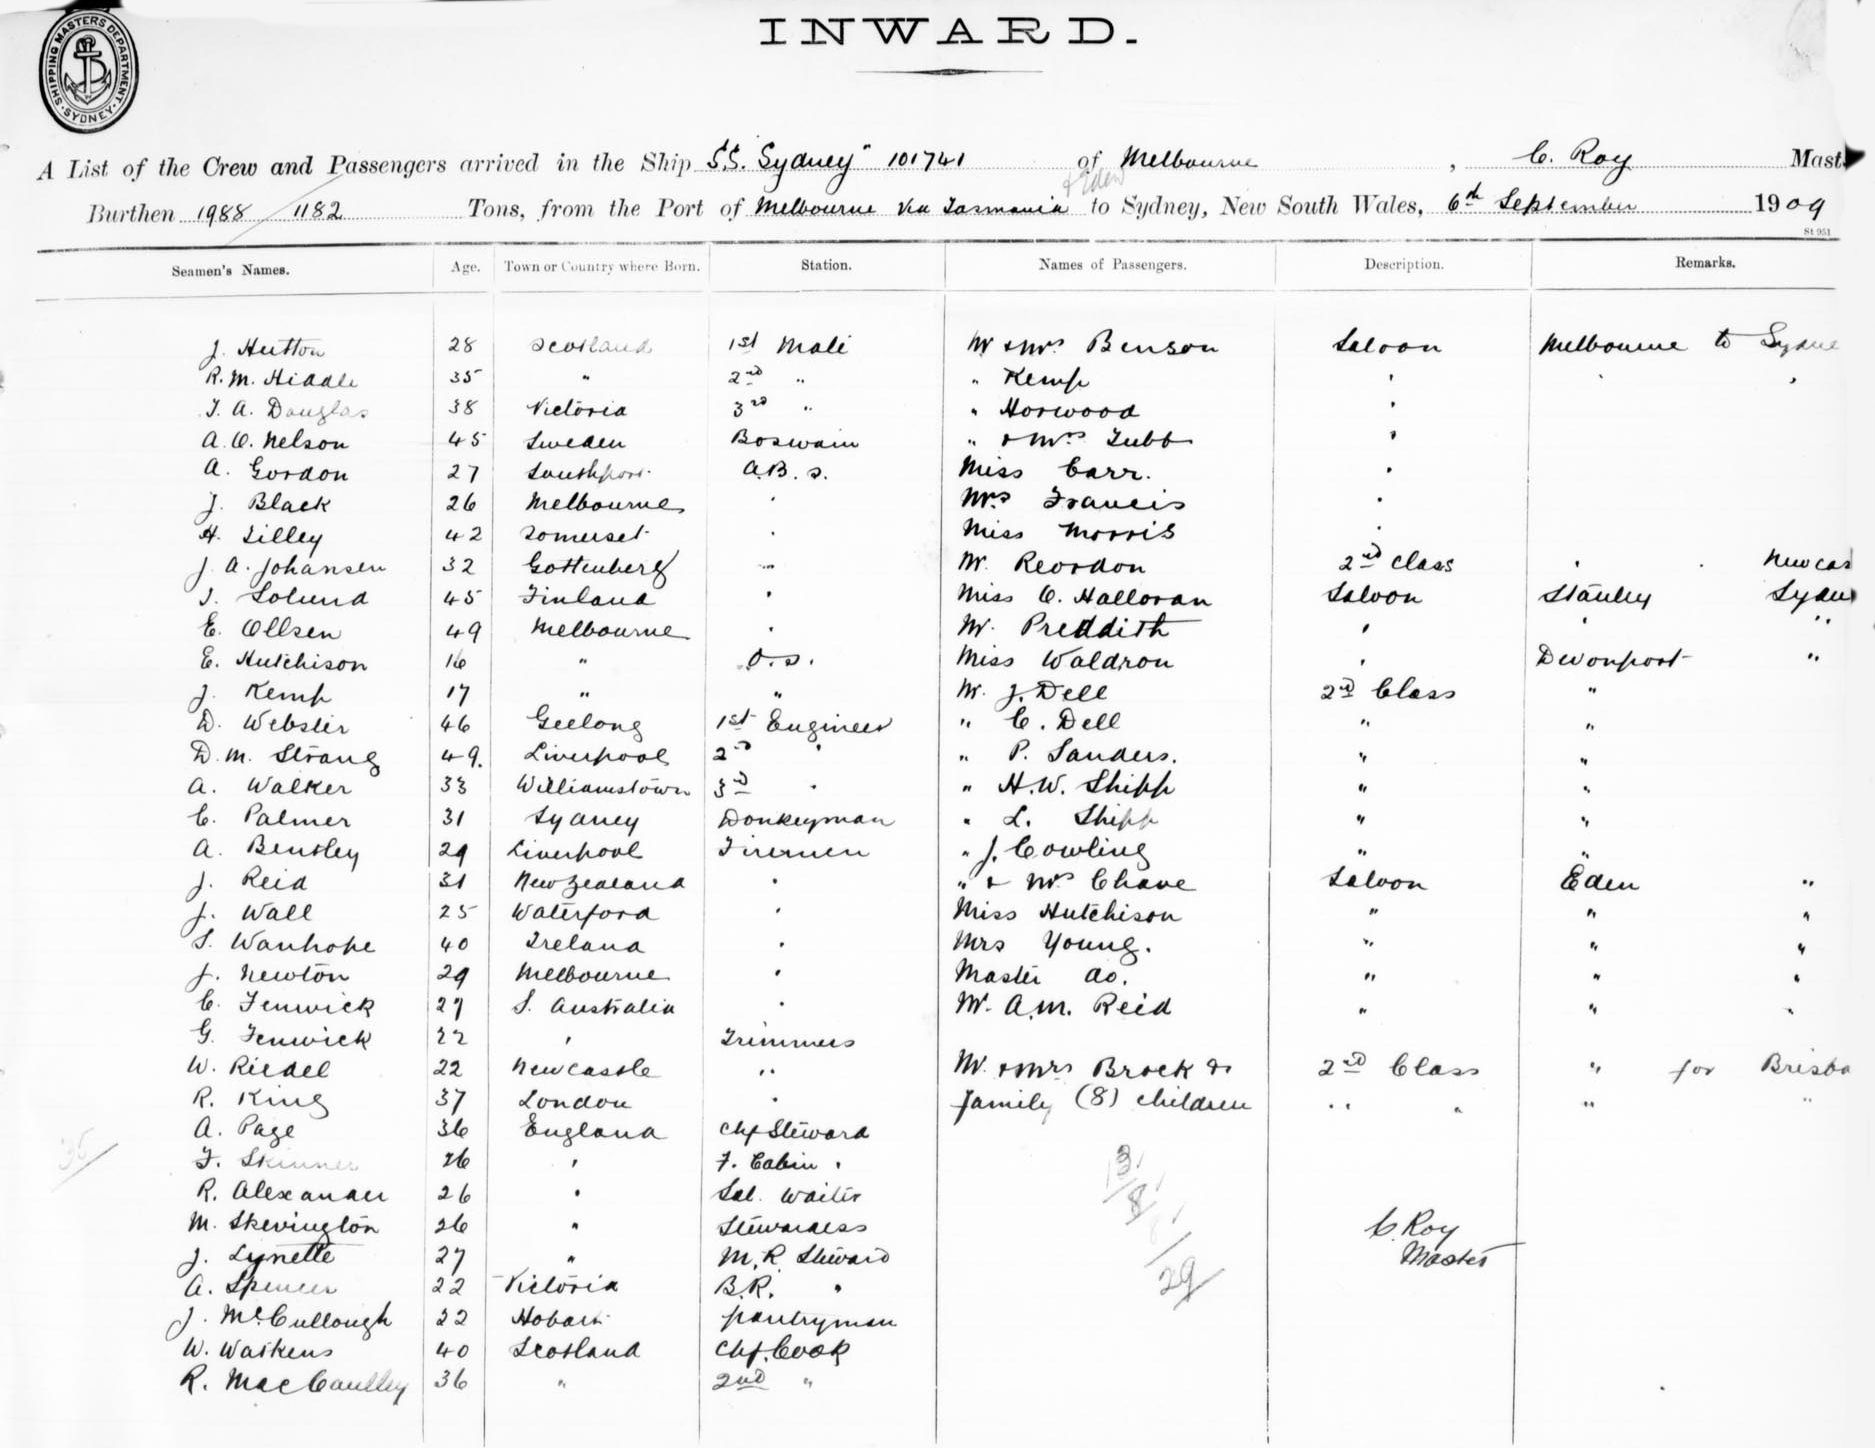 SHIPPING MASTERS DEPARTMENT SYDNEY
INWARD.
A List of the Crew and Passengers arrived in the Ship S.S. "Sydney" 101741 of Melbourne, C. Roy Mast
Burthen 1988 / 1182 Tons, from the Port of Melbourne via Tasmania & Eden to Sydney, New South Wales, 6th September 1909
St 951
Seamen's Names. Age. Town or Country where Born. Station. Names of Passengers. Description. Remarks.
J. Hutton 28 Scotland 1st Mate Mr & Mrs Benson Saloon Melbourne to Sydne
R. M. Hiddle 35 " 2nd " " Kemp " " "
T. A. Douglas 38 Victoria 3rd " " Horwood "
A. O. Nelson 45 Sweden Boswain " & Mrs Tubb "
A. Gordon 27 Southport A.B.s. Miss Carr. "
J. Black 26 Melbourne " Mrs Francis "
H. Tilley 42 Somerset " Miss Morris "
J. A. Johansen 32 Gottenberg " Mr. Reordon 2nd Class " " Newcas
Solund 45 Finland " Miss O. Halloran Saloon Stanley Sydne
E. Ollsen 49 Melbourne " Mr. Preddith " " "
E. Hutchison 16 " O.S. Miss Waldron " Devonport "
J. Kemp 17 " " Mr. J. Dell 2nd Class "
D. Webster 46 Geelong 1st Engineer " C. Dell " "
D. M. Strang 49. Liverpool 2nd " " P. Sanders. " "
A. Walker 33 Williamstown 3rd " " H. W. Shipp " "
C. Palmer 31 Sydney Donkeyman " L. Shipp " "
A. Bentley 29 Liverpool Firemen " J. Cowling " "
J. Reid 31 New Zealand " " & Mrs Chave Saloon Eden "
J. Wall 25 Waterford " Miss Hutchison " " "
S. Wanhope 40 Ireland " Mrs Young. " " "
J. Newton 29 Melbourne " Master do. " " "
C. Fenwick 27 S. Australia " Mr. A. M. Reid " " "
G. Fenwick 22 " Trimmers
W. Riedel 22 Newcastle " Mr. & Mrs Brock & 2nd Class " for Brisba
R. King 37 London " family (8) children " " " "
A. Page 36 England Chf Steward
F. Skinner 26 " F. Cabin "
R. Alexander 26 " Sal. Waiter
M. Skevington 26 " Stewardess C. Roy
J. Lynette 27 " M.R. Steward Master
A. Spencer 22 Victoria B.R. "
J. McCullough 22 Hobart pantryman
W. Watkens 40 Scotland Chf. Cook
R. MacCaulley 36 " 2nd "
35
13
8
8
29